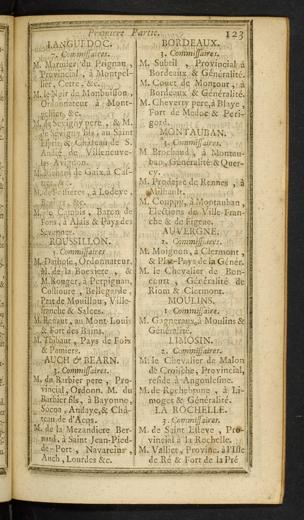 Premiere Partie. 123
LANGUEDOC.
7. Commissaires.
M. Marnier, du Prignan,
Provincial, à Montpel-
lier, Cette, &c.
M. le Noir de Monbuisson,
Ordonnateur à Mont-
pellier, &c.
M. de Sevigny pere, & M.
de Sevigny fils, au Saint
Esprit & Château de S.
André de Villeneuve-
lès Avignon.
à Cas-
tres, &c.
à Lodeve,
&c.
M. de Cambis, Baron de
Fons, à Alais & Pays des
Sevennes.
ROUSSILLON.
5. Commissaires
Ordonnateur.
M. de la Boexiere, &
M. Rouger, à Perpignan,
Collioure, Bellegarde,
Prat de Mouillou, Ville-
franche & Salces.
M. Renaut, au Mont-Louis
& Fort des Bains.
M. Thibaut, Pays de Foix
& Pamiers.
AUCH & BEARN.
3. Commissaires.
M. du Barbier pere, Pro-
vincial, Ordonn. M. du
Barbier fils, à Bayonne,
Socoa, Andaye, & Châ-
teau de d'Acqs.
M. de la Mezandiere Ber-
naud, à Saint Jean-Pied-
de-Port, Navareins,
Auch, Lourdes &c.
BORDEAUX.
3. Commissaires.
M. Subeil, Provincial à
Bordeaux & Généralité.
M. Couet de Montour, à
Bordeaux & Généralité.
M. Cheverry pere, à Blaye,
Fort de Medoc & Peri-
gord.
MONTAUBAN.
3. Commissaires.
M. Brochaud, à Montau-
ban, Généralité & Quer-
cy.
M. Prodejac de Rennes, à
M. Couppy, à Montauban,
Elections de Ville-Fran-
che & de Figeac.
AUVERGNE.
2. Commissaires.
M. Moignon, à Clermont,
& Plat-Pays de la Génér.
M. le Chevalier de Bon-
court, Généralité de
Riom & Clermont.
MOULINS.
1. Commissaire.
M. Gagneraux, à Moulins &
Généralité.
LIMOSIN.
2. Commissaires.
M. le Chevalier de Malon
de Croische, Provincial,
reside à Angoulesme.
M. de Rochebrune, à Li-
moges & Généralité.
LA ROCHELLE.
3. Commissaires.
M. de Saint Esteve, Pro-
vincial à la Rochelle.
M. Valliet, Provinc. à l'Isle
de Ré & Fort de la Pré